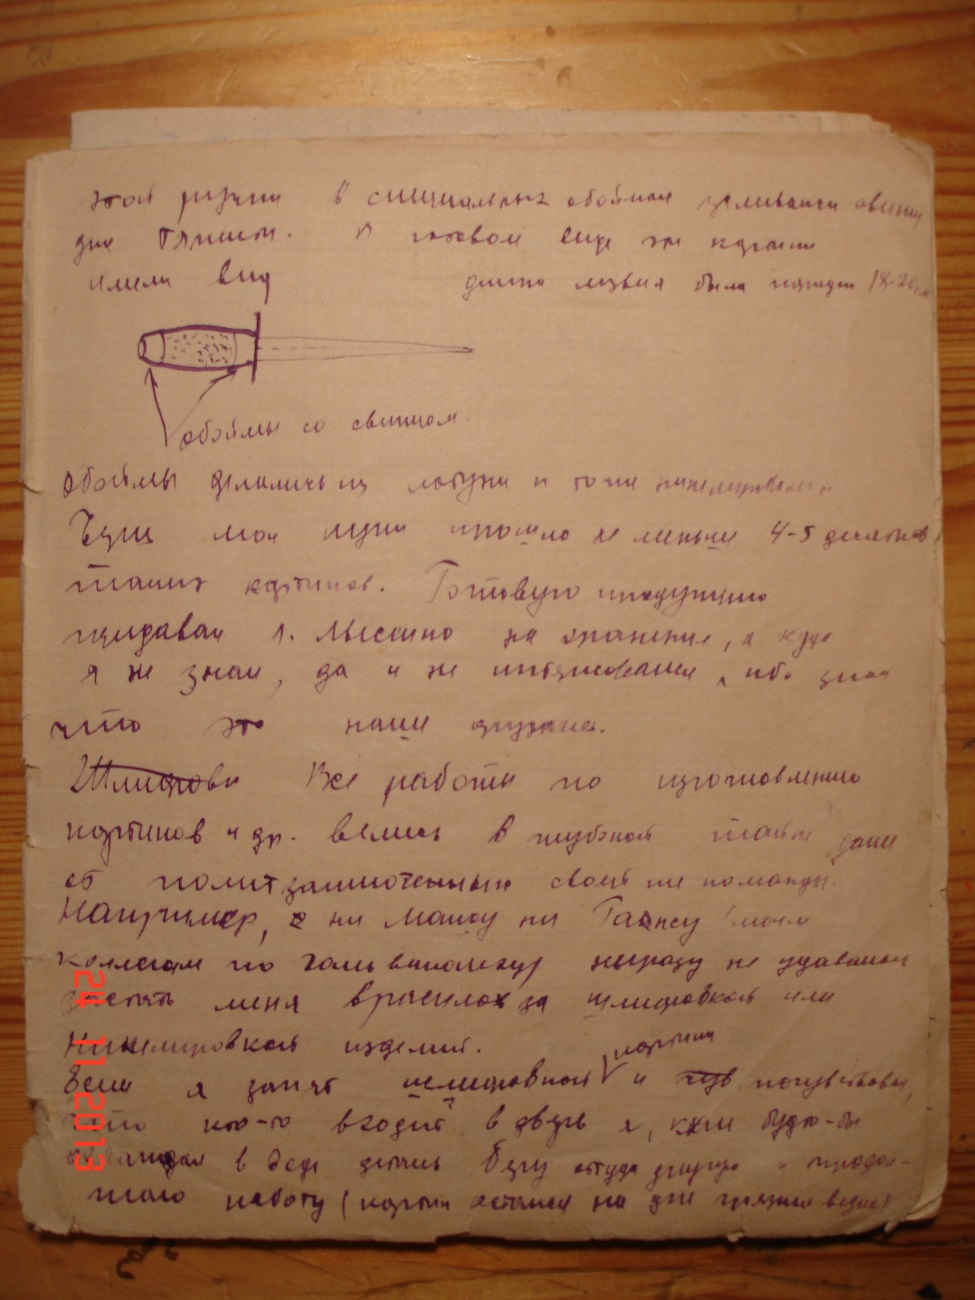 этой ручки в специальных обоймах заливали свинец
для тяжести. В готовом виде эти кортики
имели вид длина лезвия была 18-20 см
обоймы со свинцом
Обоймы делались из латуни и тоже никелировались
Через мои руки прошло не меньше 4-5 десятков
таких кортиков. Готовую продукцию
передавал на хранение, а куда
я не знал, да и не интересовался, ибо знал
что это наше оружие.
Шлифовк Все работы по изготовлению
кортиков и др. велись в глубокой тайне даже
от политзаключенных своей же команды.
Например, ни ни Гансу (моим
коллегам по гальванике) ни разу не удавалось
застать меня врасплох за шлифовкой или
Никелировкой изделий.
Если я занят шлифовкой кортика и почувствовал,
что кто-то входит в дверь я, как будто бы
в воде деталь беру оттуда другую и продол-
жаю работу (кортик остался на дне
24 11 2013